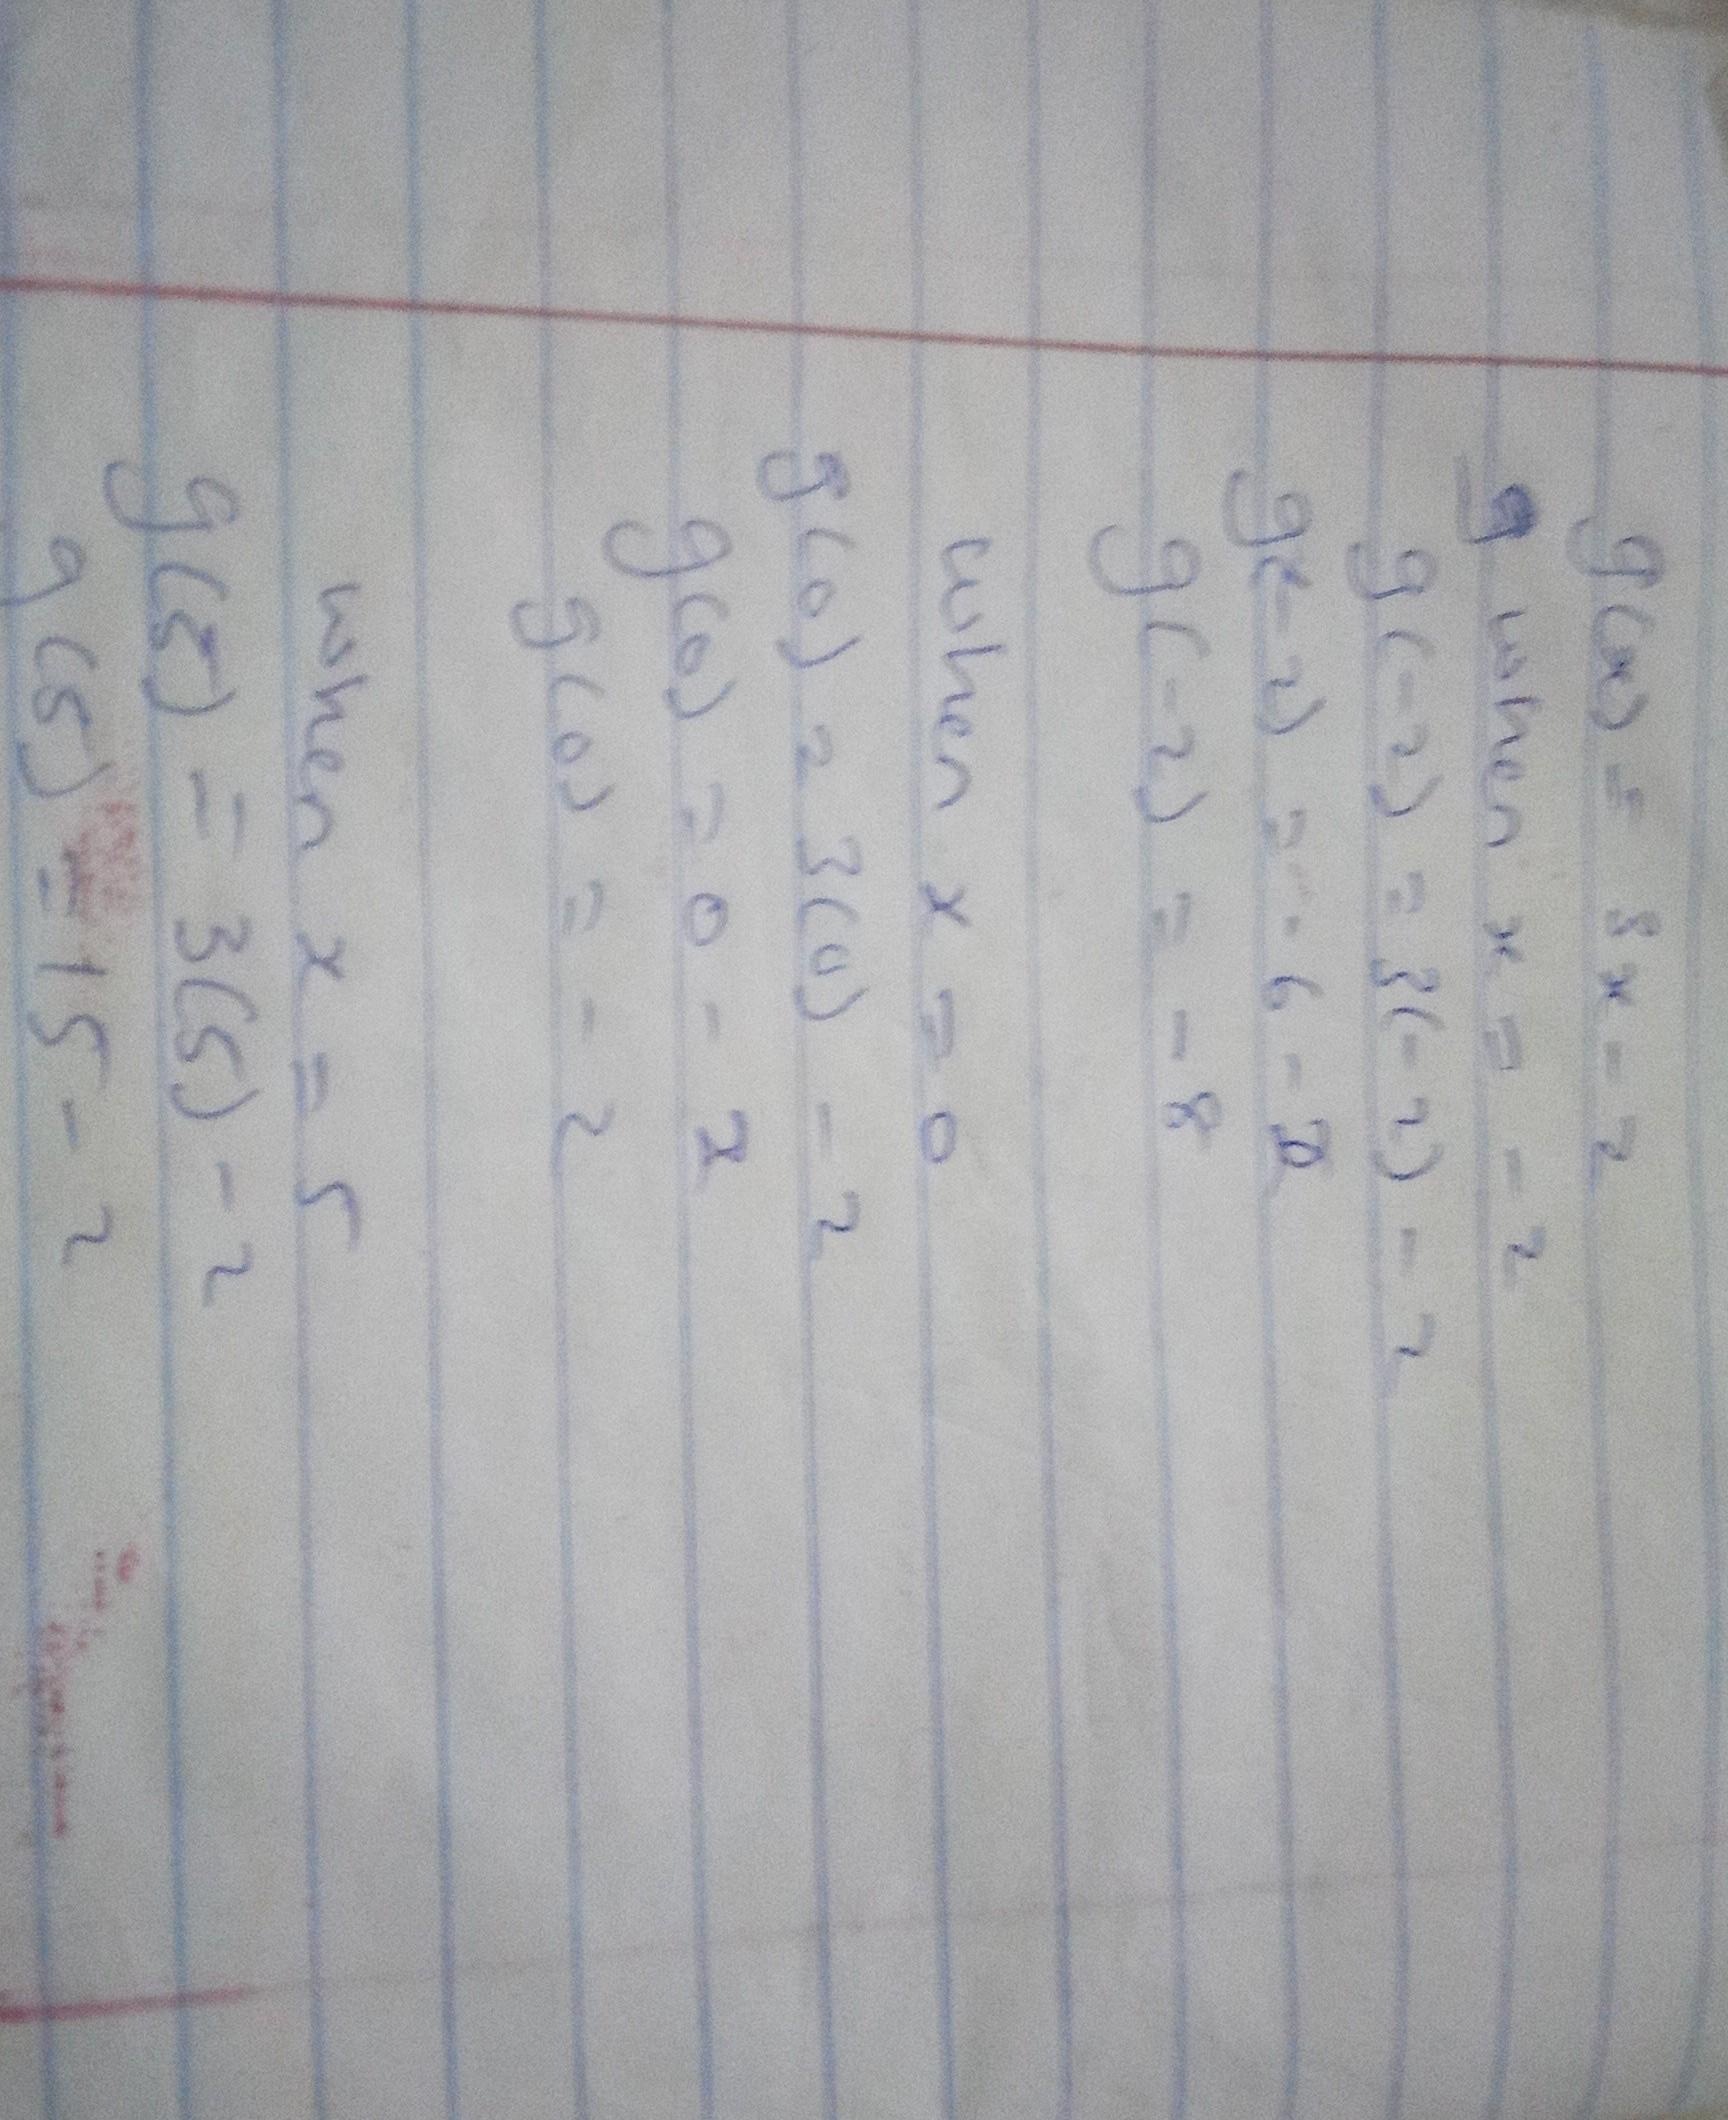 g(x) = 3x - 2
g when x = -2
g(-2) = 3(-2) - 2
g(-2) = -6 - 2
g(-2) = -8
when x = 0
g(0) = 3(0) - 2
g(0) = 0 - 2
g(0) = -2
when x = 5
g(5) = 3(5) - 2
g(5) = 15 - 2